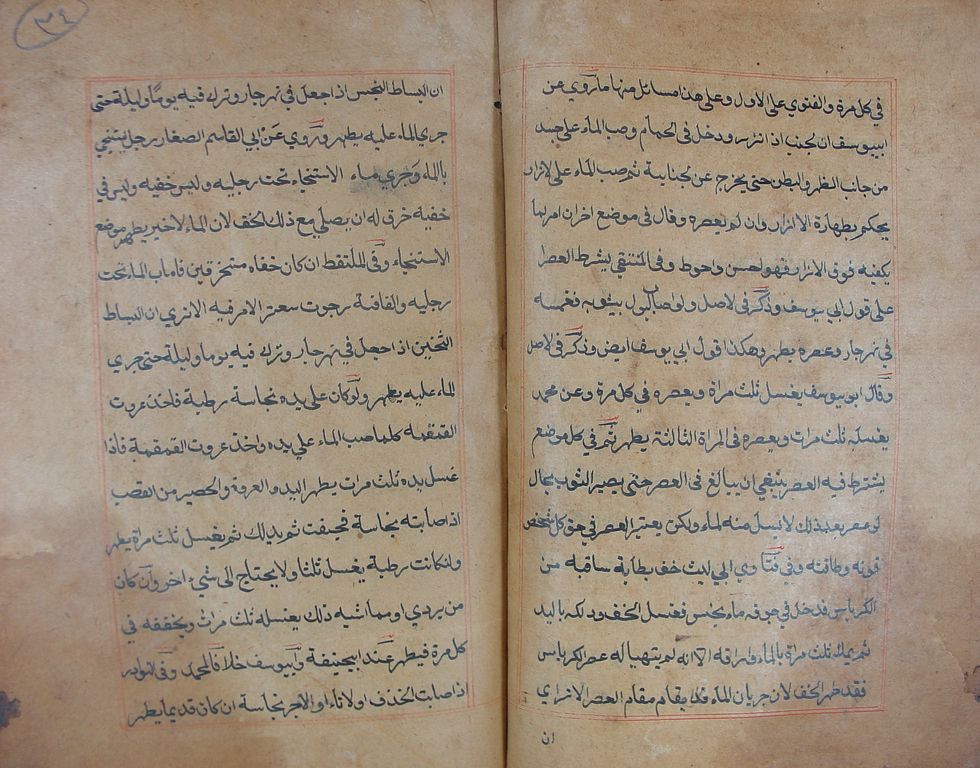 في كل مرة والفتوي على الاول وعلى هذا مسائل منها ما روي عن
ابيوسف ان الجنب اذا اتزر ودخل في الحمام وصب الماء على جسد
من جانب الظهر والبطن حتى يخرج عن الجنابة ثم صب الماء على الازار
يحكم بطهارة الازار وان لم يعصره وقال في موضع اخر ان امر الما
يكفيه فوق الازار فهو احسن واحوط وفي المنتقي يشرط العصر
على قول ابي يوسف وذكر في الاصل ولو اصاب البول بثوبه فغمسه
في نهر جار وعصره يطهر وهكذا قول ابي يوسف ايض وذكر في الاصل
وقال ابو يوسف يغسل ثلث مراة ويعصره في كل مرة وعن محمد
يغسله ثلث مرات ويعصره في المراة الثالثة يطهر ثم في كل موضع
يشترط فيه العصر ينبغي ان يبالغ في العصر حتى يصير الثوب بحال
لو عصر بعد ذلك لا يسيل منه الماء ولكن يعتبر العصر في حق كل شخص
قوته وطاقته وفي فتاوي ابي ليث خف بطانة ساقه من
الكرباس فدخل في جوفه ماء نجس فغسل الخف ودلكه باليد
ثم يملا ثلث مراة بالماء واراقه الا انه لم يتهيا له عصر الكرباس
فقد طهر الخف لان جريان الماء قد يقام مقام العصر الا تري
ان
٣٤
ان البساط النجس اذا جعل في نهر جار وترك فيه يوما وليلة حتى
جري الماء عليه يطهر وروي عن ابي القاسم الصفار رجل يستنجي
بالماء وجري ماء الاستنجاء تحت رجليه وليس خفيه وليس في
خفيه خرق له ان يصلي مع ذلك الخف لان الماء الاخير يطهر موضع
الاستنجاء وفي الملتقط ان كان خفاه منخرقين فاصاب الماء تحت
رجليه والفافة رجوت سعة الامر فيه الا تري ان البساط
الثخين اذا جعل في نهر جار وترك فيه يوما وليلة حتى جري
الماء عليه يطهر ولو كان على يده نجاسة رطبة فاخذ عروت
القمقمه كلما صب الماء علي يده واخذ عروت القمقمة فاذا
غسل يده ثلث مرات يطهر اليد والعروة والحصير من القصب
اذا صابته نجاسة فجففت ثم يدلك ثم يغسل ثلث مراة يطهر
ولنكانت رطبة يغسل ثلثا ولا يحتاج الى شيء اخر وان كان
من بردي او مما اشبه ذلك يغسله ثلث مرات ويخففه في
كل مرة فيطهر عند ابيحنيفة وابيوسف خلافا لمحمد وفي النوادر
اذا صابت الخذف او الاناء او الاجر نجاسة ان كان قديما يطهر